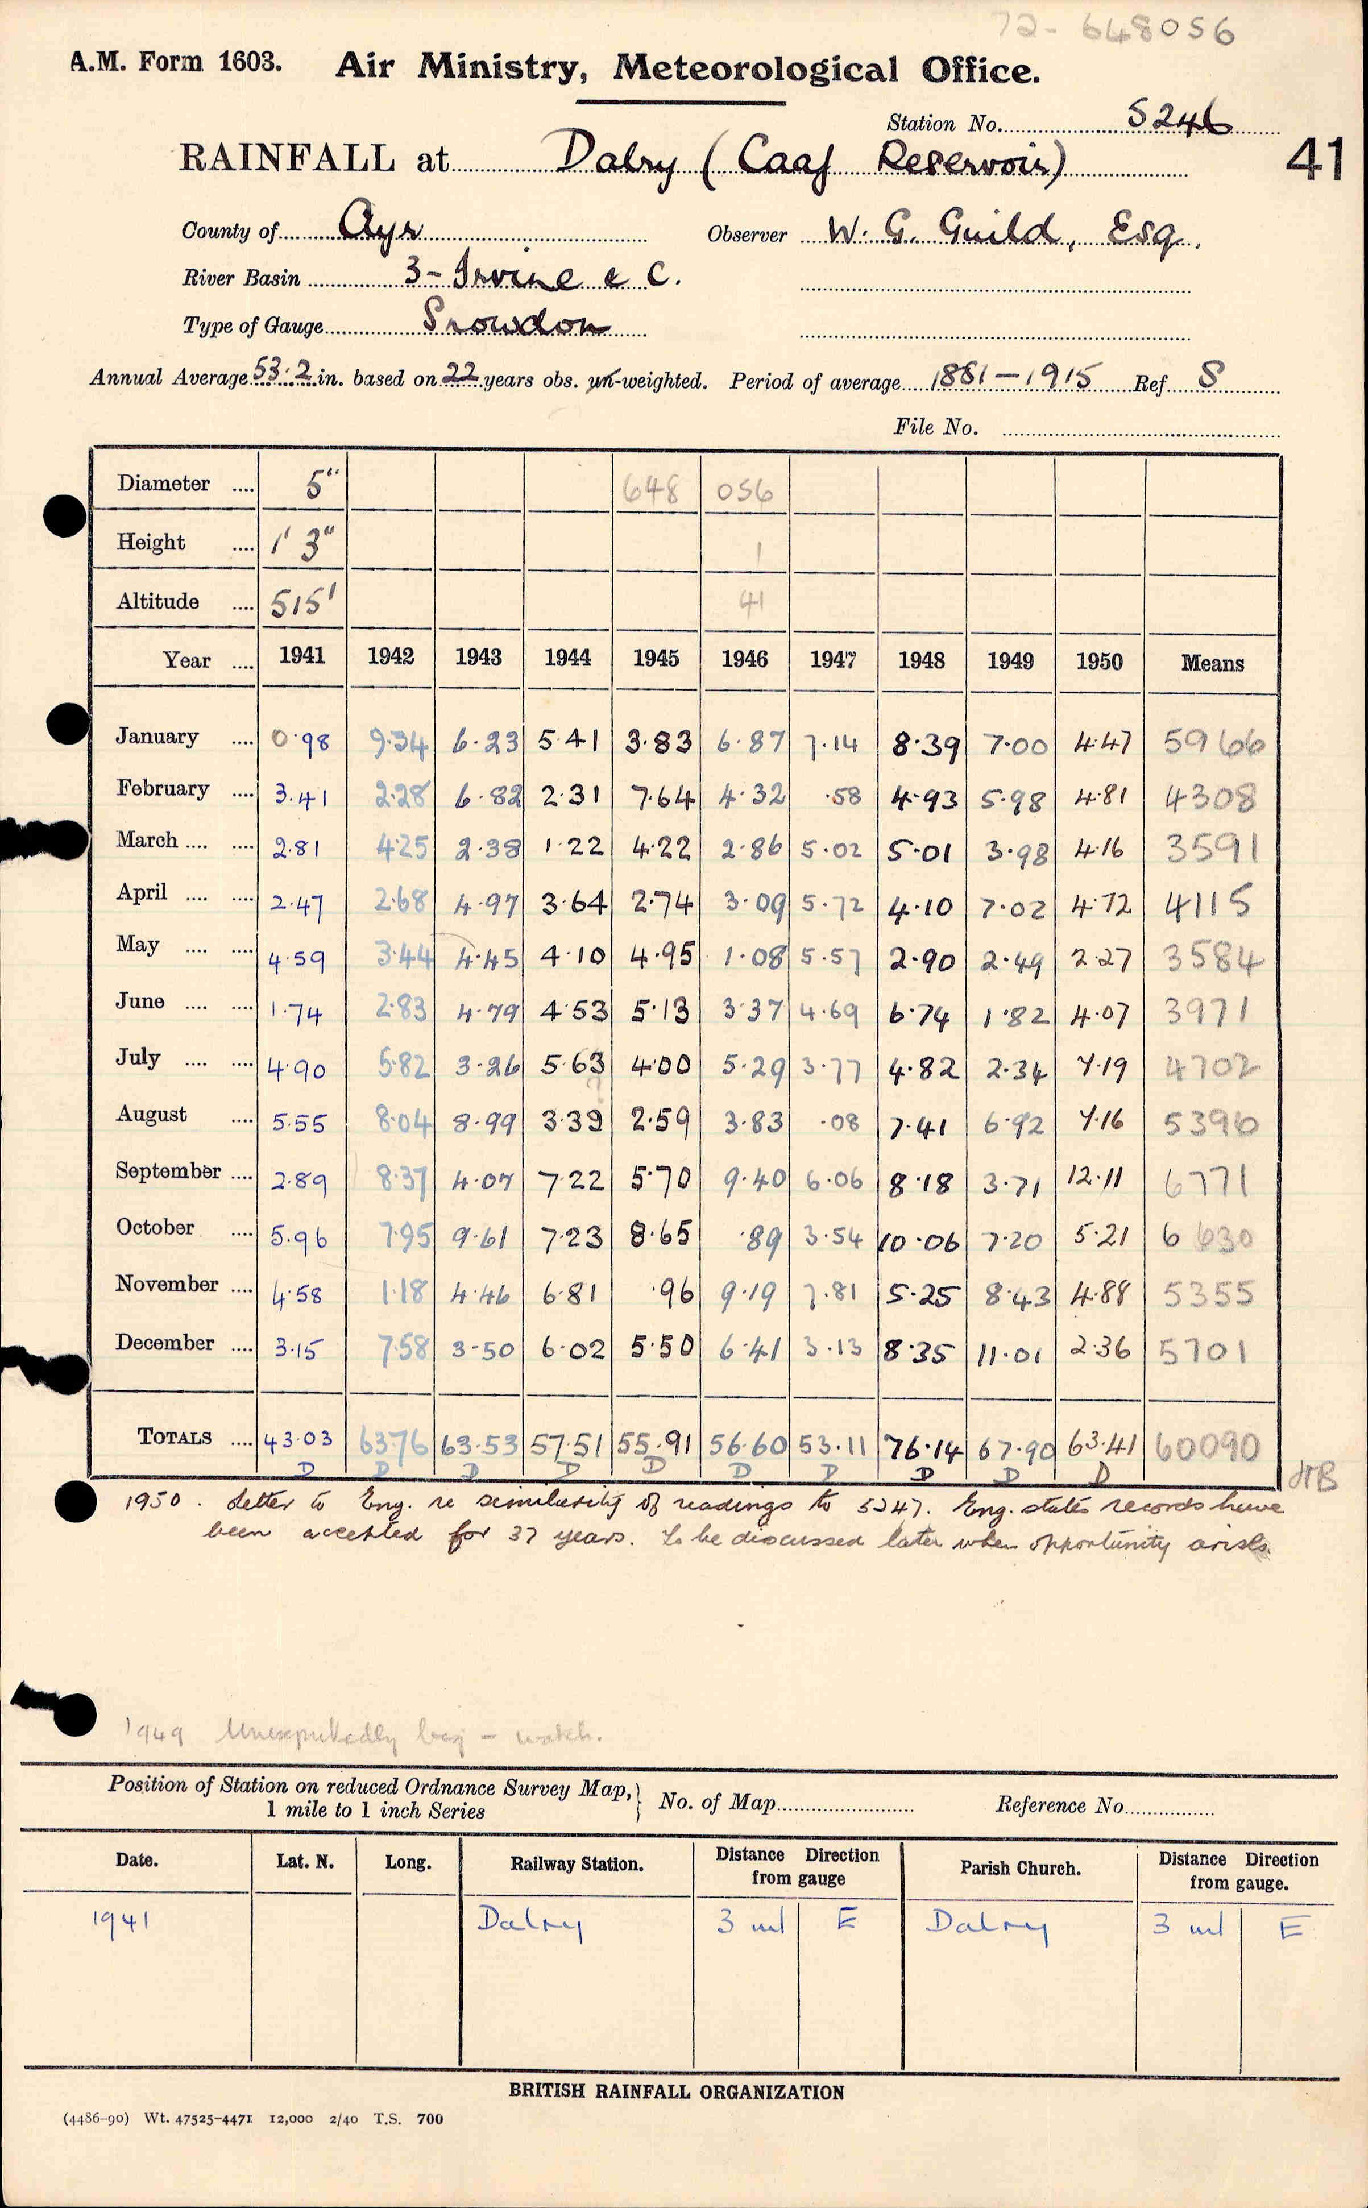 72- 648056
A.M. Form 1603. Air Ministry, Meteorological Office.
Station No. 5246
RAINFALL at Dalry (Caaf Reservoir)
41
County of Ayr Observer W. G. Guild, Esq.
River Basin 3-Irvine & C.
Type of Gauge Snowdon
Annual Average 53.2 in. based on 22 years obs. un-weighted. Period of average 1881-1915 Ref S
File No.
Diameter .... 5" 648 056
Height .... 1' 3" 1
Altitude .... 515' 41
Year .... 1941 1942 1943 1944 1945 1946 1947 1948 1949 1950 Means
January .... 0.98 9.34 6.23 5.41 3.83 6.87 7.14 8.39 7.00 4.47 5966
February .... 3.41 2.28 6.82 2.31 7.64 4.32 .58 4.93 5.98 4.81 4308
March .... .... 2.81 4.25 2.38 1.22 4.22 2.86 5.02 5.01 3.98 4.16 3591
April .... .... 2.47 2.68 4.97 3.64 2.74 3.09 5.72 4.10 7.02 4.72 4115
May .... .... 4.59 3.44 4.45 4.10 4.95 1.08 5.57 2.90 2.49 2.27 3584
June .... .... 1.74 2.83 4.79 4.53 5.13 3.37 4.69 6.74 1.82 4.07 3971
July .... .... 4.90 5.82 3.26 5.63 4.00 5.29 3.77 4.82 2.34 7.19 4702
August .... 5.55 8.04 8.99 3.39 2.59 3.83 .08 7.41 6.92 7.16 5396
September .... 2.89 8.37 4.07 7.22 5.70 9.40 6.06 8.18 3.71 12.11 6771
October .... 5.96 7.95 9.61 7.23 8.65 .89 3.54 10.06 7.20 5.21 6630
November .... 4.58 1.18 4.46 6.81 .96 9.19 7.81 5.25 8.43 4.88 5355
December .... 3.15 7.58 3.50 6.02 5.50 6.41 3.13 8.35 11.01 2.36 5701
TOTALS .... 43.03 63.76 63.53 57.51 55.91 56.60 53.11 76.14 67.90 63.41 60090
D D D D D D D D D D
1950. Letter to Eng. re similarity of readings to 5247. Eng. states records have
been accepted for 37 years. To be discussed later when opportunity arises.
1949 Unexpectedly big - watch.
Position of Station on reduced Ordnance Survey Map, 1 mile to 1 inch Series } No. of Map Reference No.
Date. Lat. N. Long. Railway Station. Distance Direction from gauge Parish Church. Distance Direction from gauge.
1941 Dalry 3 ml E Dalry 3 ml E
BRITISH RAINFALL ORGANIZATION
(4486-90) Wt. 47525-4471 12,000 2/40 T.S. 700